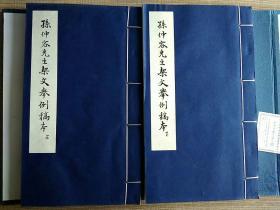 孫仲容先生栔文舉例稿本
孫仲容先生栔文舉例稿本